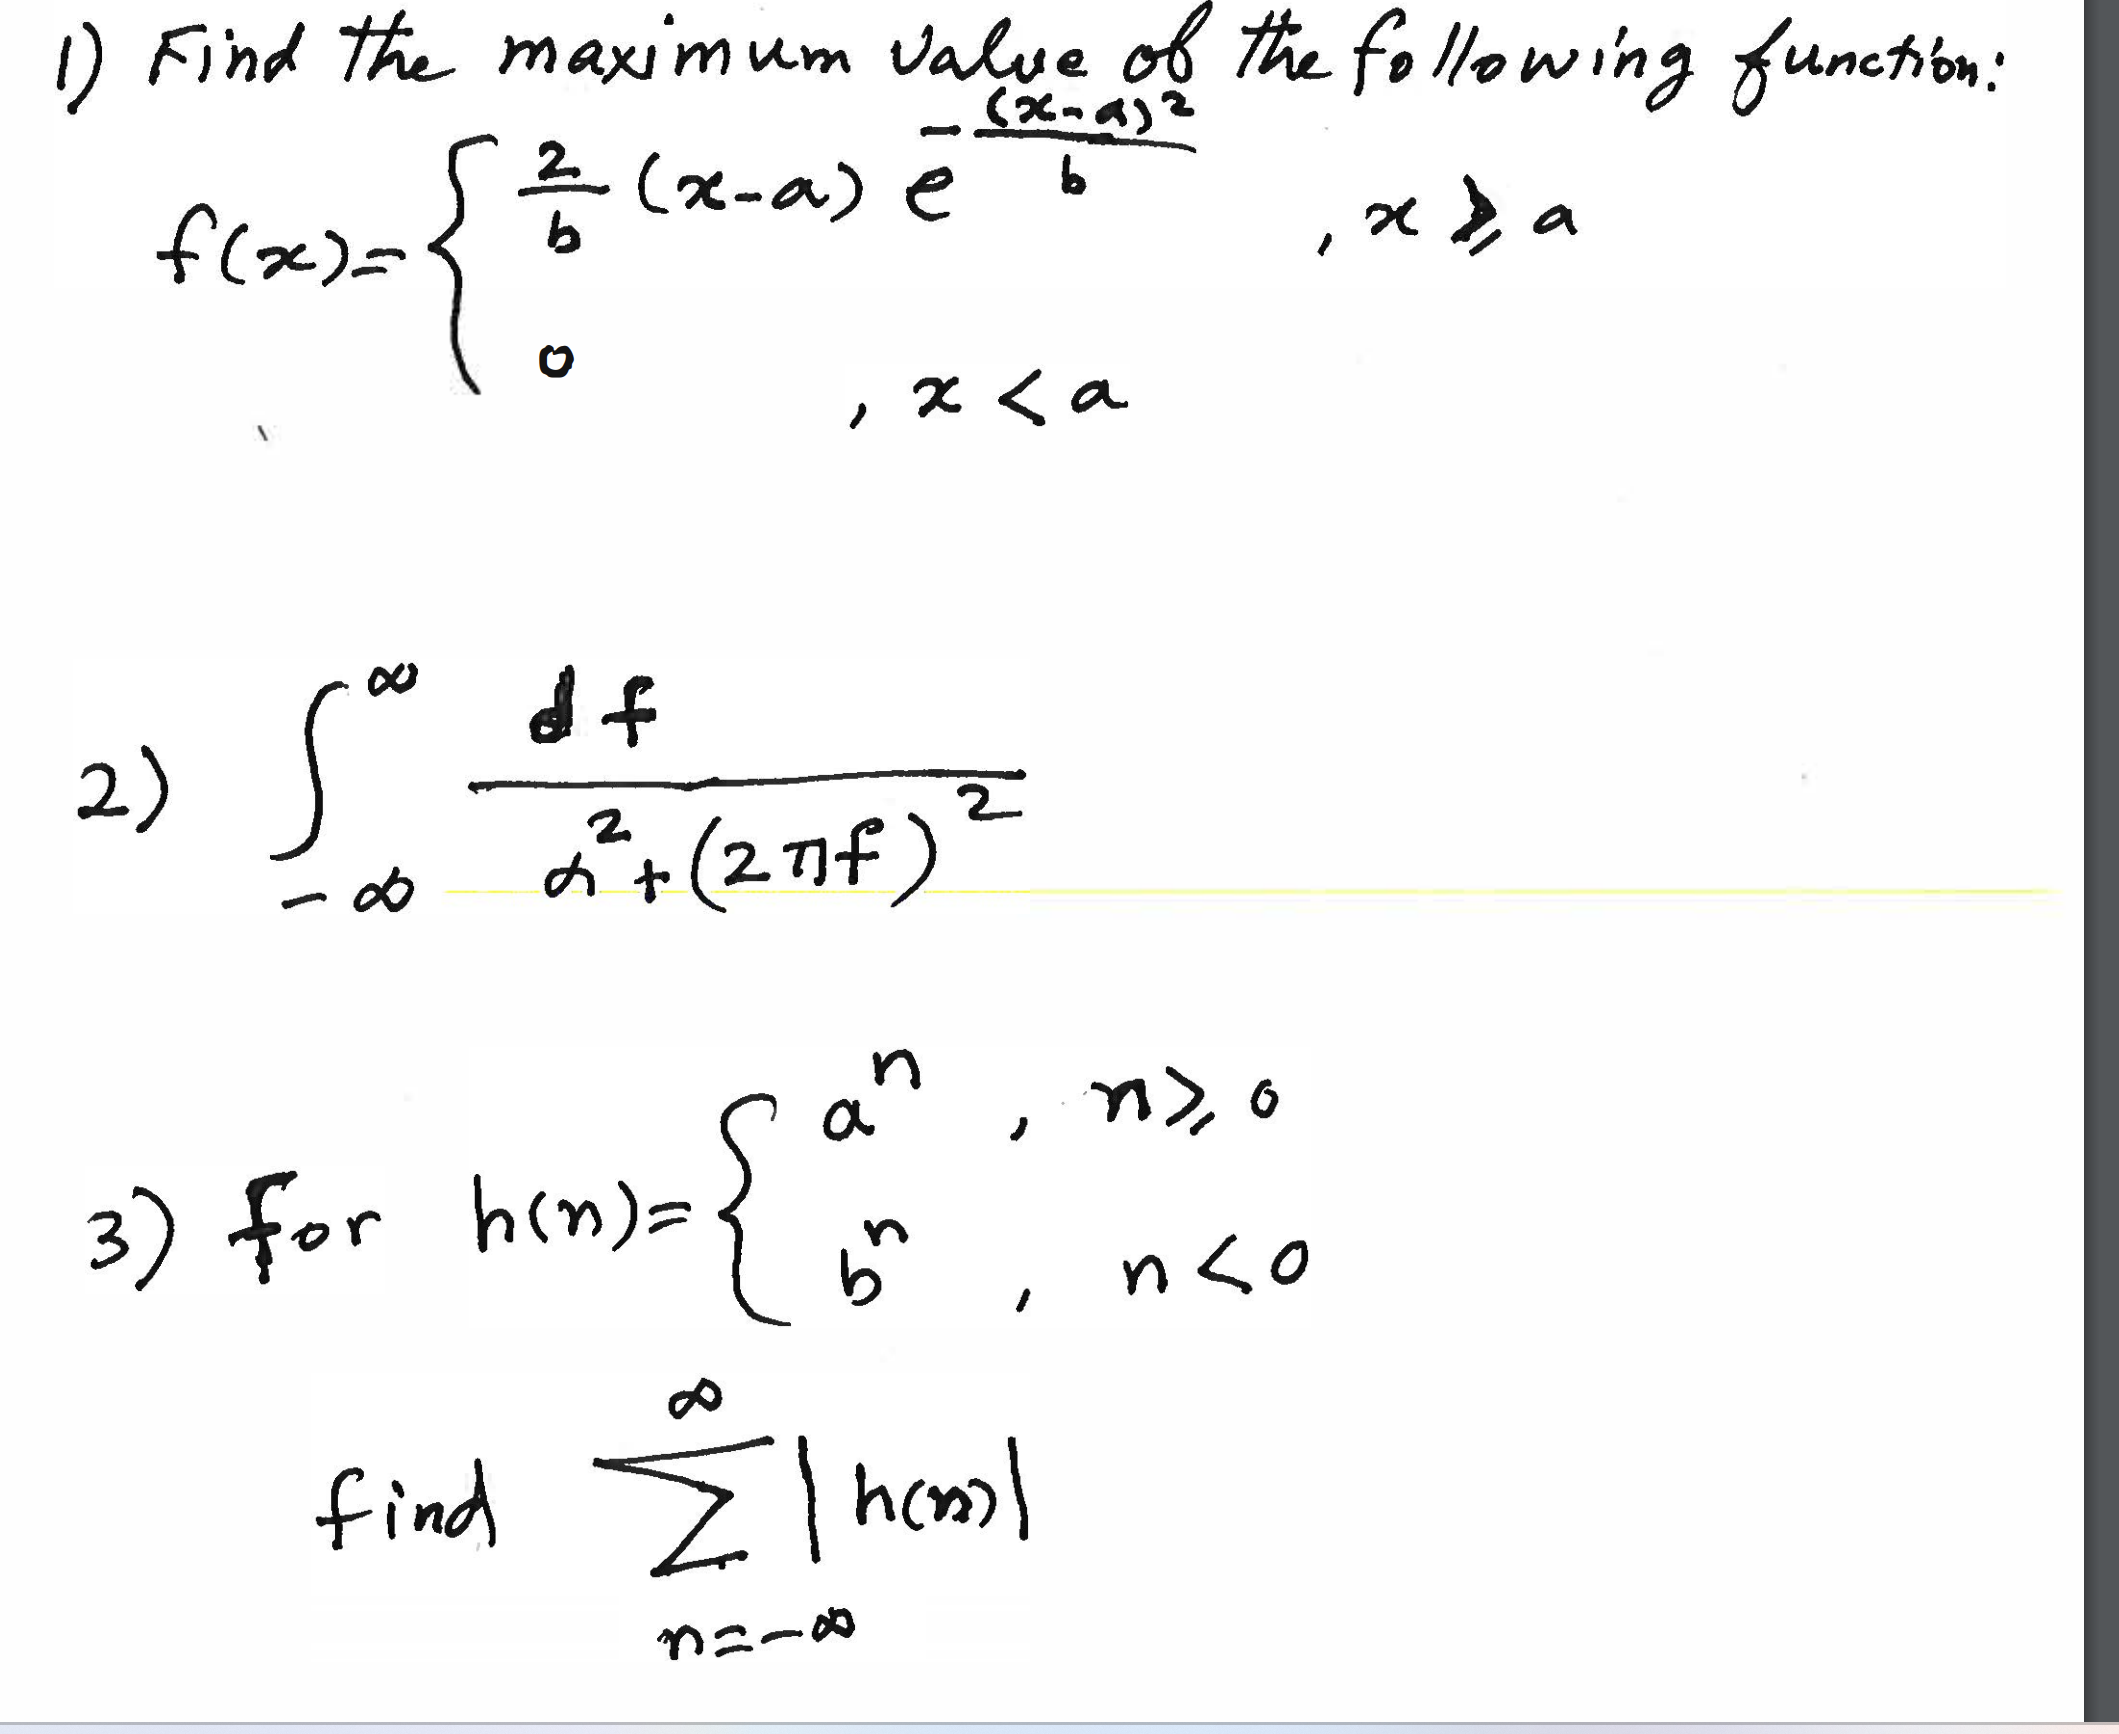 1) Find the maximum value of the following function:
f(x)= { 2/b (x-a) e^(-(x-a)²/b) , x ⩾ a
0 , x < a
2) ∫_{-∞}^{∞} df / (α² + (2πf)²)
3) for h(n)= { aⁿ , n ⩾ 0
bⁿ , n < 0
find ∑_{n=-∞}^{∞} |h(n)|